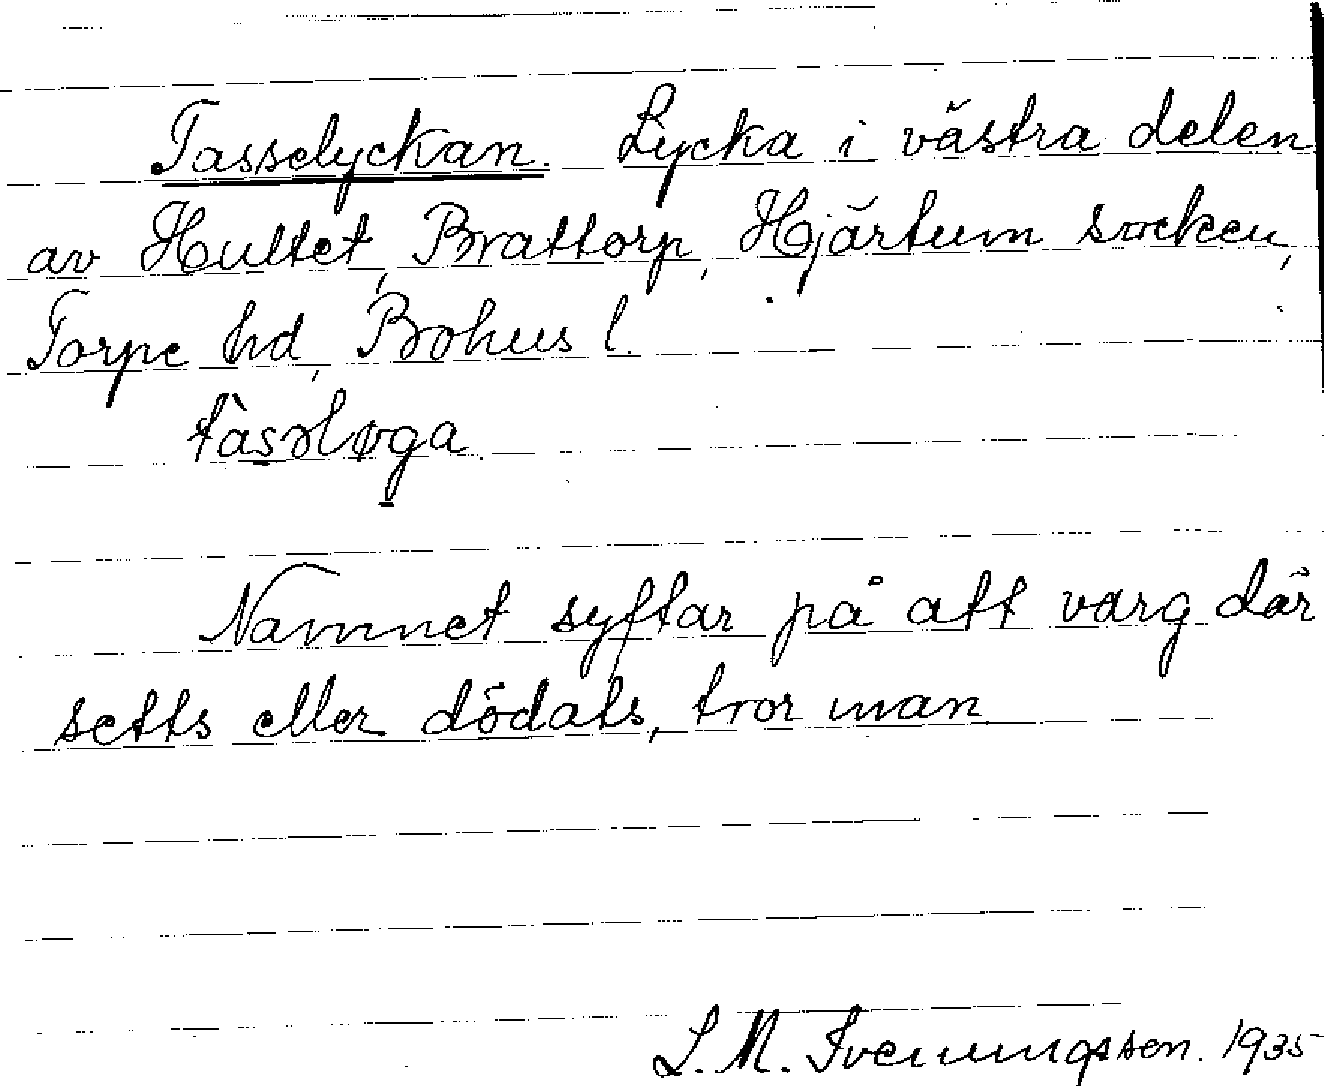 Tasselyckan. Lycka i västra delen
av Hultet, Brattorp, Hjärtum socken,
Torpe hd, Bohus l.
tàsəløga
Namnet syftar på att varg där
setts eller dödats, tror man
S. M. Svenungsson. 1935